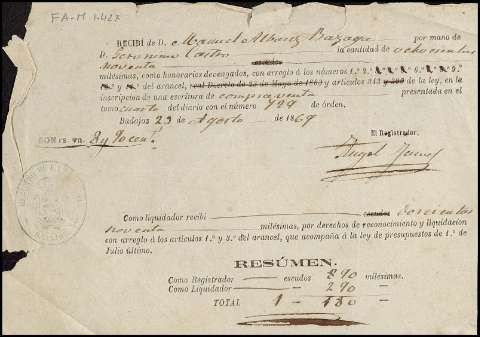 FA-M 1.427
RECIBÍ de D. Manuel Albarez Bazaga por mano de
D. Jeronimo Castro la cantidad de ochocientas
noventa escudos
milésimas, como honorarios devengados, con arreglo á los números 1.º 2.º
y del arancel, real Decreto de 25 de Mayo de 1863 y artículos 343 y de la ley, en la
inscripcion de una escritura de compra venta presentada en el
tomo cuarto del diario con el número 729 de órden.
Badajoz 23 de Agosto de 1869
SON rs. vn. 8 y 90 cent.s
El Registrador,
Angel
Como liquidador recibí escudos doscientas
noventa milésimas, por derechos de reconocimiento y liquidacion
con arreglo á los artículos 1.º y 3.º del arancel, que acompaña á la ley de presupuestos de 1.º de
Julio último.
RESÚMEN.
Como Registrador escudos 890 milésimas.
Como Liquidador 290 »
TOTAL 1 180 »